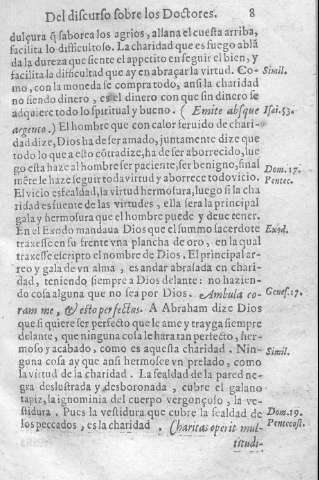 Del discurso sobre los Doctores. 8
dulçura q̃ saborea los agrios, allana el cuesta arriba,
facilita lo dificultoso. La charidad que es fuego ablã
da la dureza que siente el appetito en seguir el bien, y
facilita la difficultad que ay en abraçar la virtud. Co-
mo, con la moneda se compra todo, ansi la charidad
no siendo dinero, es el dinero con que sin dinero se
adquiere todo lo spiritual y bueno. (Emite absque
argento.) El hombre que con calor feruido de chari-
dad dize, Dios ha de ser amado, juntamente dize que
todo lo que a esto cõtradize, ha de ser aborrecido, lue
go esta haze al hombre ser paciente, ser benigno, final
mẽte le haze seguir toda virtud y aborrece todo vicio.
El vicio es fealdad, la virtud hermosura, luego si la cha
ridad es fuente de las virtudes, ella sera la principal
gala y hermosura que el hombre puede y deue tener.
En el Exodo mandaua Dios que el summo sacerdote
traxesse en su frente vna plancha de oro, en la qual
traxesse escripto el nombre de Dios. El principal ar-
reo y gala de vn alma, es andar abrasada en chari-
dad, teniendo siempre a Dios delante: no hazien-
do cosa alguna que no sea por Dios. Ambula co-
ram me, & esto perfectus. A Abraham dize Dios
que si quiere ser perfecto que le ame y trayga siempre
delante, que ninguna cosa le hara tan perfecto, her-
moso y acabado, como es aquesta charidad. Nin-
guna cosa ay que ansi hermosee vn prelado, como
la virtud de la charidad. La fealdad de la pared ne-
gra deslustrada y desboronada, cubre el galano
tapiz, la ignominia del cuerpo vergonçoso, la ve-
stidura. Pues la vestidura que cubre la fealdad de
los peccados, es la charidad. (Charitas operit mul-
titudi-
Simil.
Isai. 53.
Dom. 17.
Pentec.
Exod.
Genes. 17.
Simil.
Dom. 19.
Pentecost.